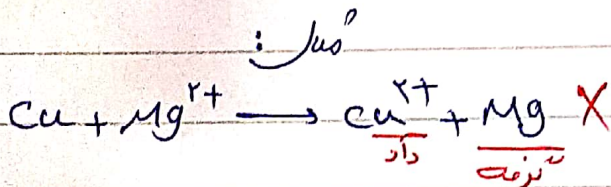 مثال:
Cu + Mg²⁺ ⟶ Cu²⁺ + Mg X
داد